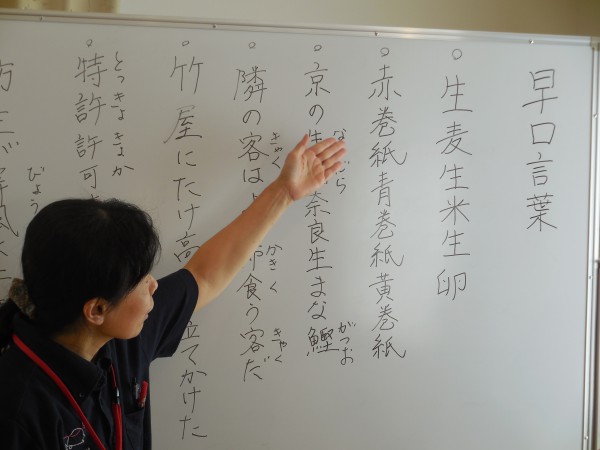 早口言葉
。生麦生米生卵
。赤巻紙青巻紙黄巻紙
。京の生 奈良生まな鰹
がつお
。隣の客は 食う客だ
きゃく かきく きゃく
。竹屋にたけ高 立てかけた
。特許許可
とっきょきょか
が屏風に
びょう